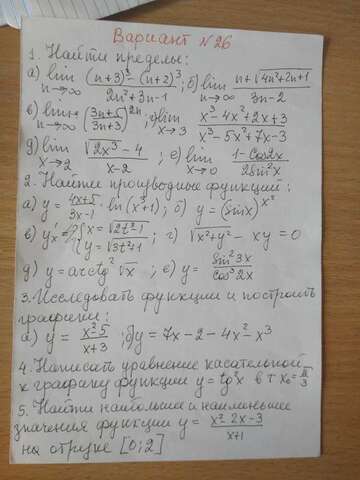 Вариант №26
1. Найти пределы:
а) lim n→∞ ((n+3)³-(n+2)³)/(2n²+3n-1); б) lim n→∞ (n+√(4n²+2n+1))/(3n-2)
в) lim n→∞ ((3n+5)/(3n+3))^(2n); г) lim x→3 (x³-4x²+2x+3)/(x³-5x²+7x-3)
д) lim x→2 (√(2x³)-4)/(x-2); е) lim x→0 (1-cos2x)/(2sin²x)
2. Найти производные функций:
а) y=(4x+5)/(3x-1)·ln(x³+1); б) y=(sinx)^(x²)
в) y'ₓ=? {x=√(2t²-1) {y=√(3t²+1); г) √(x²+y²) - xy = 0
д) y=arcctg²√x; е) y= sin²3x/cos³2x
3. Исследовать функции и построить
графики:
а) y= (x²5)/(x+3); б) y=7x-2-4x²-x³
4. Написать уравнение касательной
к графику функции y=tg²x в т x₀=π/3
5. Найти наибольшие и наименьшие
значения функции y= (x²-2x-3)/(x+1)
на отрезке [0;2]